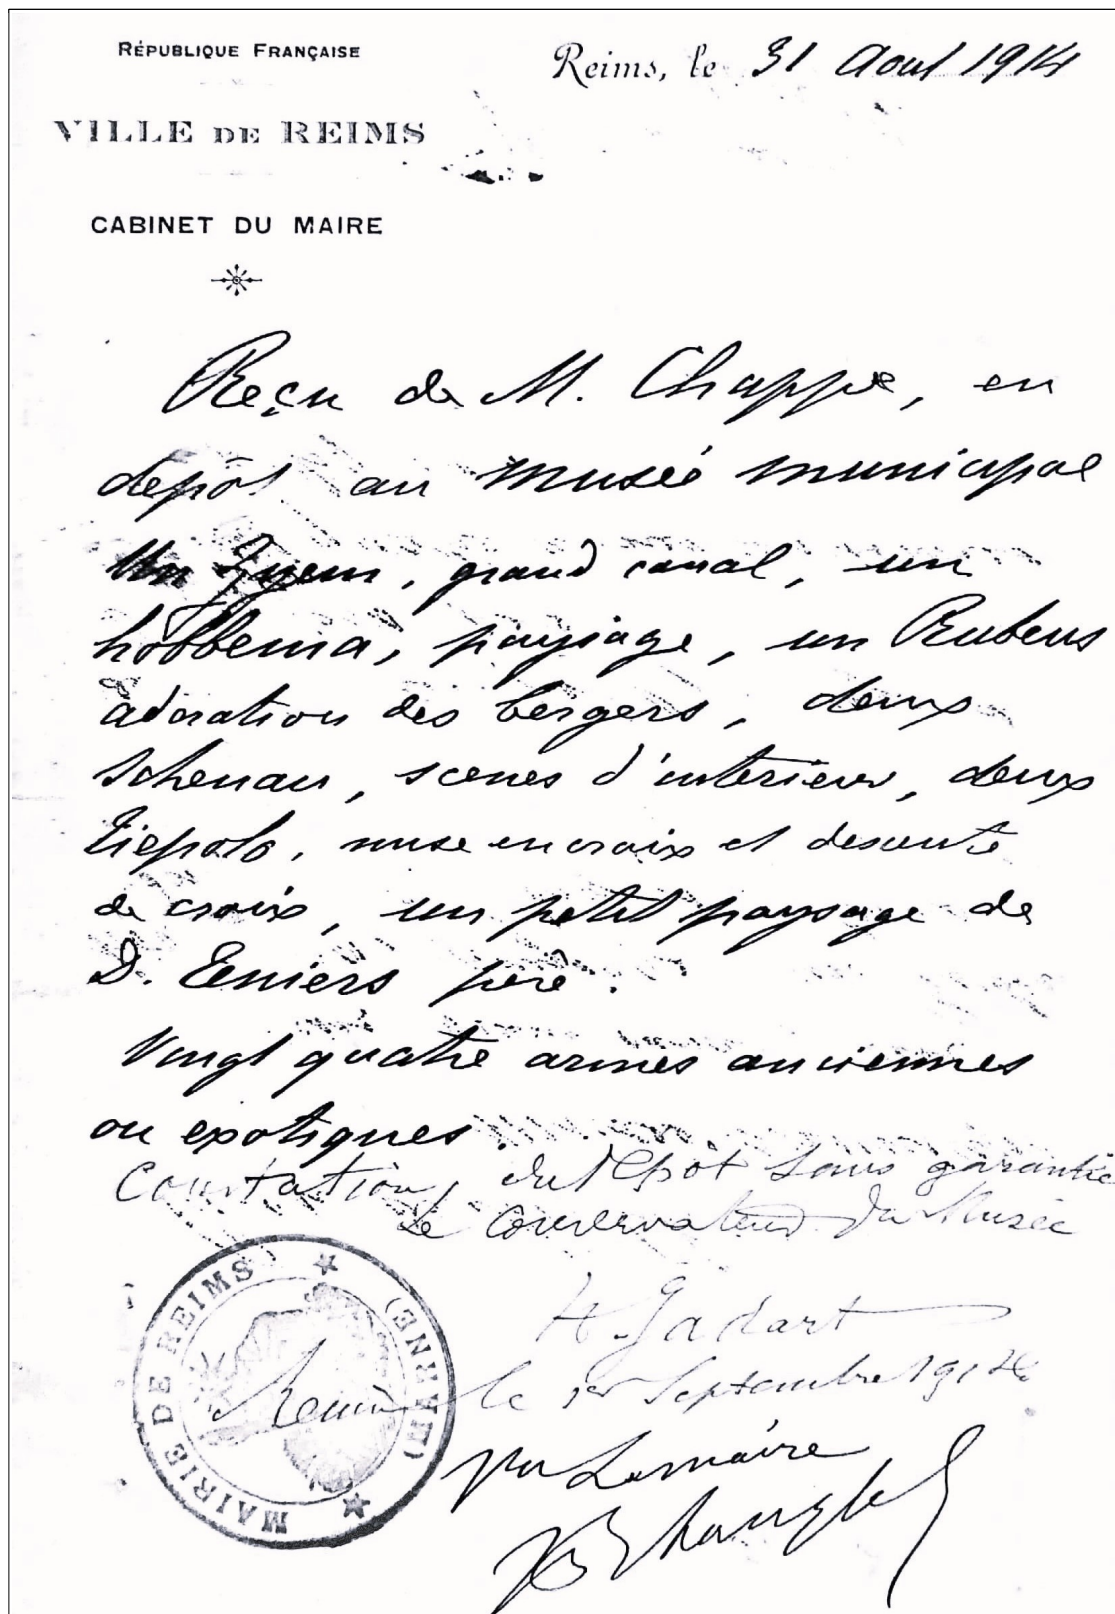 RÉPUBLIQUE FRANÇAISE
Reims, le 31 Aout 1914
VILLE DE REIMS
CABINET DU MAIRE
Reçu de M. Chappe, en
dépôt au musée municipal
Un, grand canal, un
hobbema, paysage, un Rubens
adoration des bergers, deux
Schenau, scenes d'interieur, deux
Tiepolo, mise en croix et descente
de croix, un petit paysage de
D. Teniers père.
Vingt quatre armes anciennes
ou exotiques.
du dépôt sans garantie
Le Conservateur du Musée
H. Jadart
Reims le 1er Septembre 1914
MAIRIE DE REIMS (MARNE)